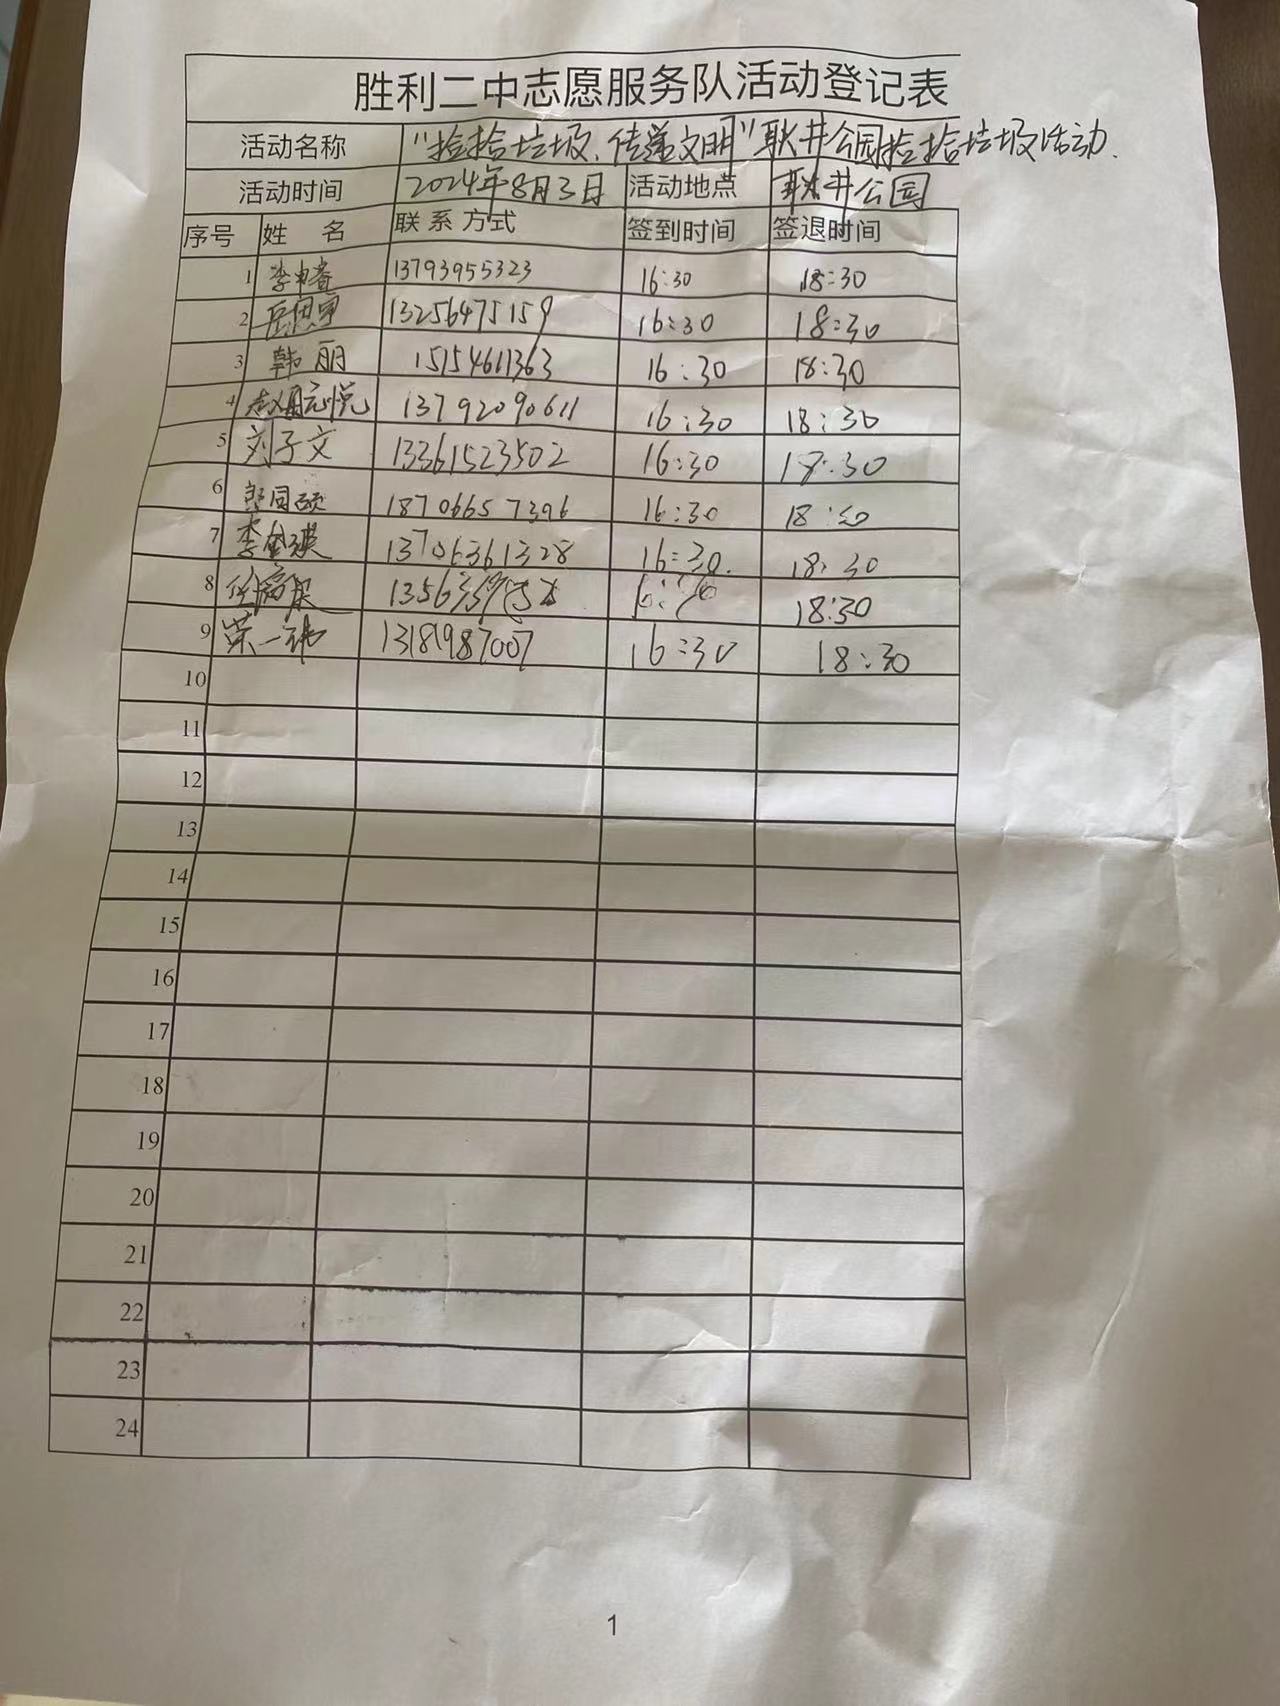 胜利二中志愿服务队活动登记表
活动名称 "捡拾垃圾、传递文明"耿井公园捡拾垃圾活动.
活动时间 2024年8月3日 活动地点 耿井公园
序号 姓 名 联系方式 签到时间 签退时间
1 13793955323 16:30 18:30
2 13256475159 16:30 18:30
3 韩丽 15154611363 16:30 18:30
4 13792090611 16:30 18:30
5 刘子文 13361523502 16:30 18:30
6 18706657396 16:30 18:30
7 13706361328 16:30. 18:30
8 18:30
9 荣一祎 13181987007 16:30 18:30
10
11
12
13
14
15
16
17
18
19
20
21
22
23
24
1